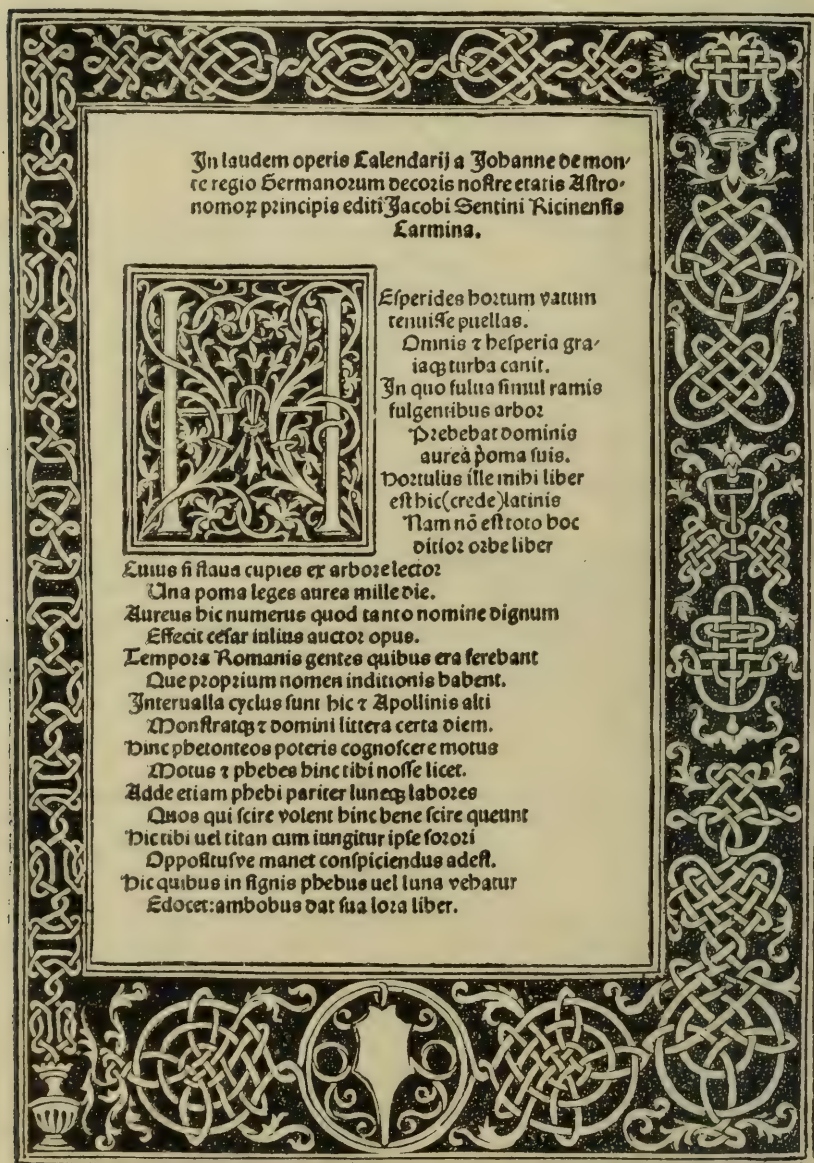 In laudem operis Calendarij a Johanne de mon-
te regio Germanorum decoris nostre etatis Astro-
nomoꝝ principis editi Jacobi Sentini Ricinensis
Carmina.
HEsperides hortum vatum
tenuisse puellas.
Omnis ⁊ hesperia gra-
iaqꝫ turba canit.
In quo fulua simul ramis
fulgentibus arbor
Prebebat dominis
aurea poma suis.
Hortulus ille mihi liber
est hic(crede)latinis
Nam nō est toto hoc
ditior orbe liber
Cuius si flaua cupies ex arbore lector
Una poma leges aurea mille die.
Aureus hic numerus quod tanto nomine dignum
Effecit cesar iulius auctor opus.
Tempora Romanis gentes quibus era ferebant
Que proprium nomen inditionis habent.
Interualla cyclus sunt hic ⁊ Apollinis alti
Monstratqꝫ ⁊ domini littera certa diem.
Hinc phetonteos poteris cognoscere motus
Motus ⁊ phebes hinc tibi nosse licet.
Adde etiam phebi pariter luneqꝫ labores
Quos qui scire volent hinc bene scire queunt
Hic tibi uel titan cum iungitur ipse sorori
Oppositusve manet conspiciendus adest.
Hic quibus in signis phebus uel luna vehatur
Edocet:ambobus dat sua lora liber.